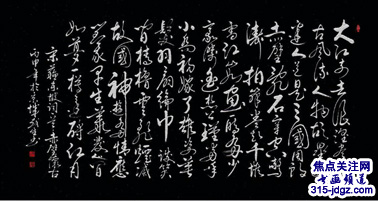 大江东去浪淘尽千
古风流人物故垒西
边人道是三国周郎
赤壁乱石穿空惊
涛拍岸卷起千堆
雪江山如画一时多少
豪杰遥想公瑾当年
小乔初嫁了雄姿英
发羽扇纶巾谈笑
间樯橹灰飞烟灭
故国神游多情应
笑我早生华发人间
如梦一尊还酹江月
宋苏东坡词念奴娇赤壁怀古
丙申年
焦点关注网
书画频道
315-jdgz.com